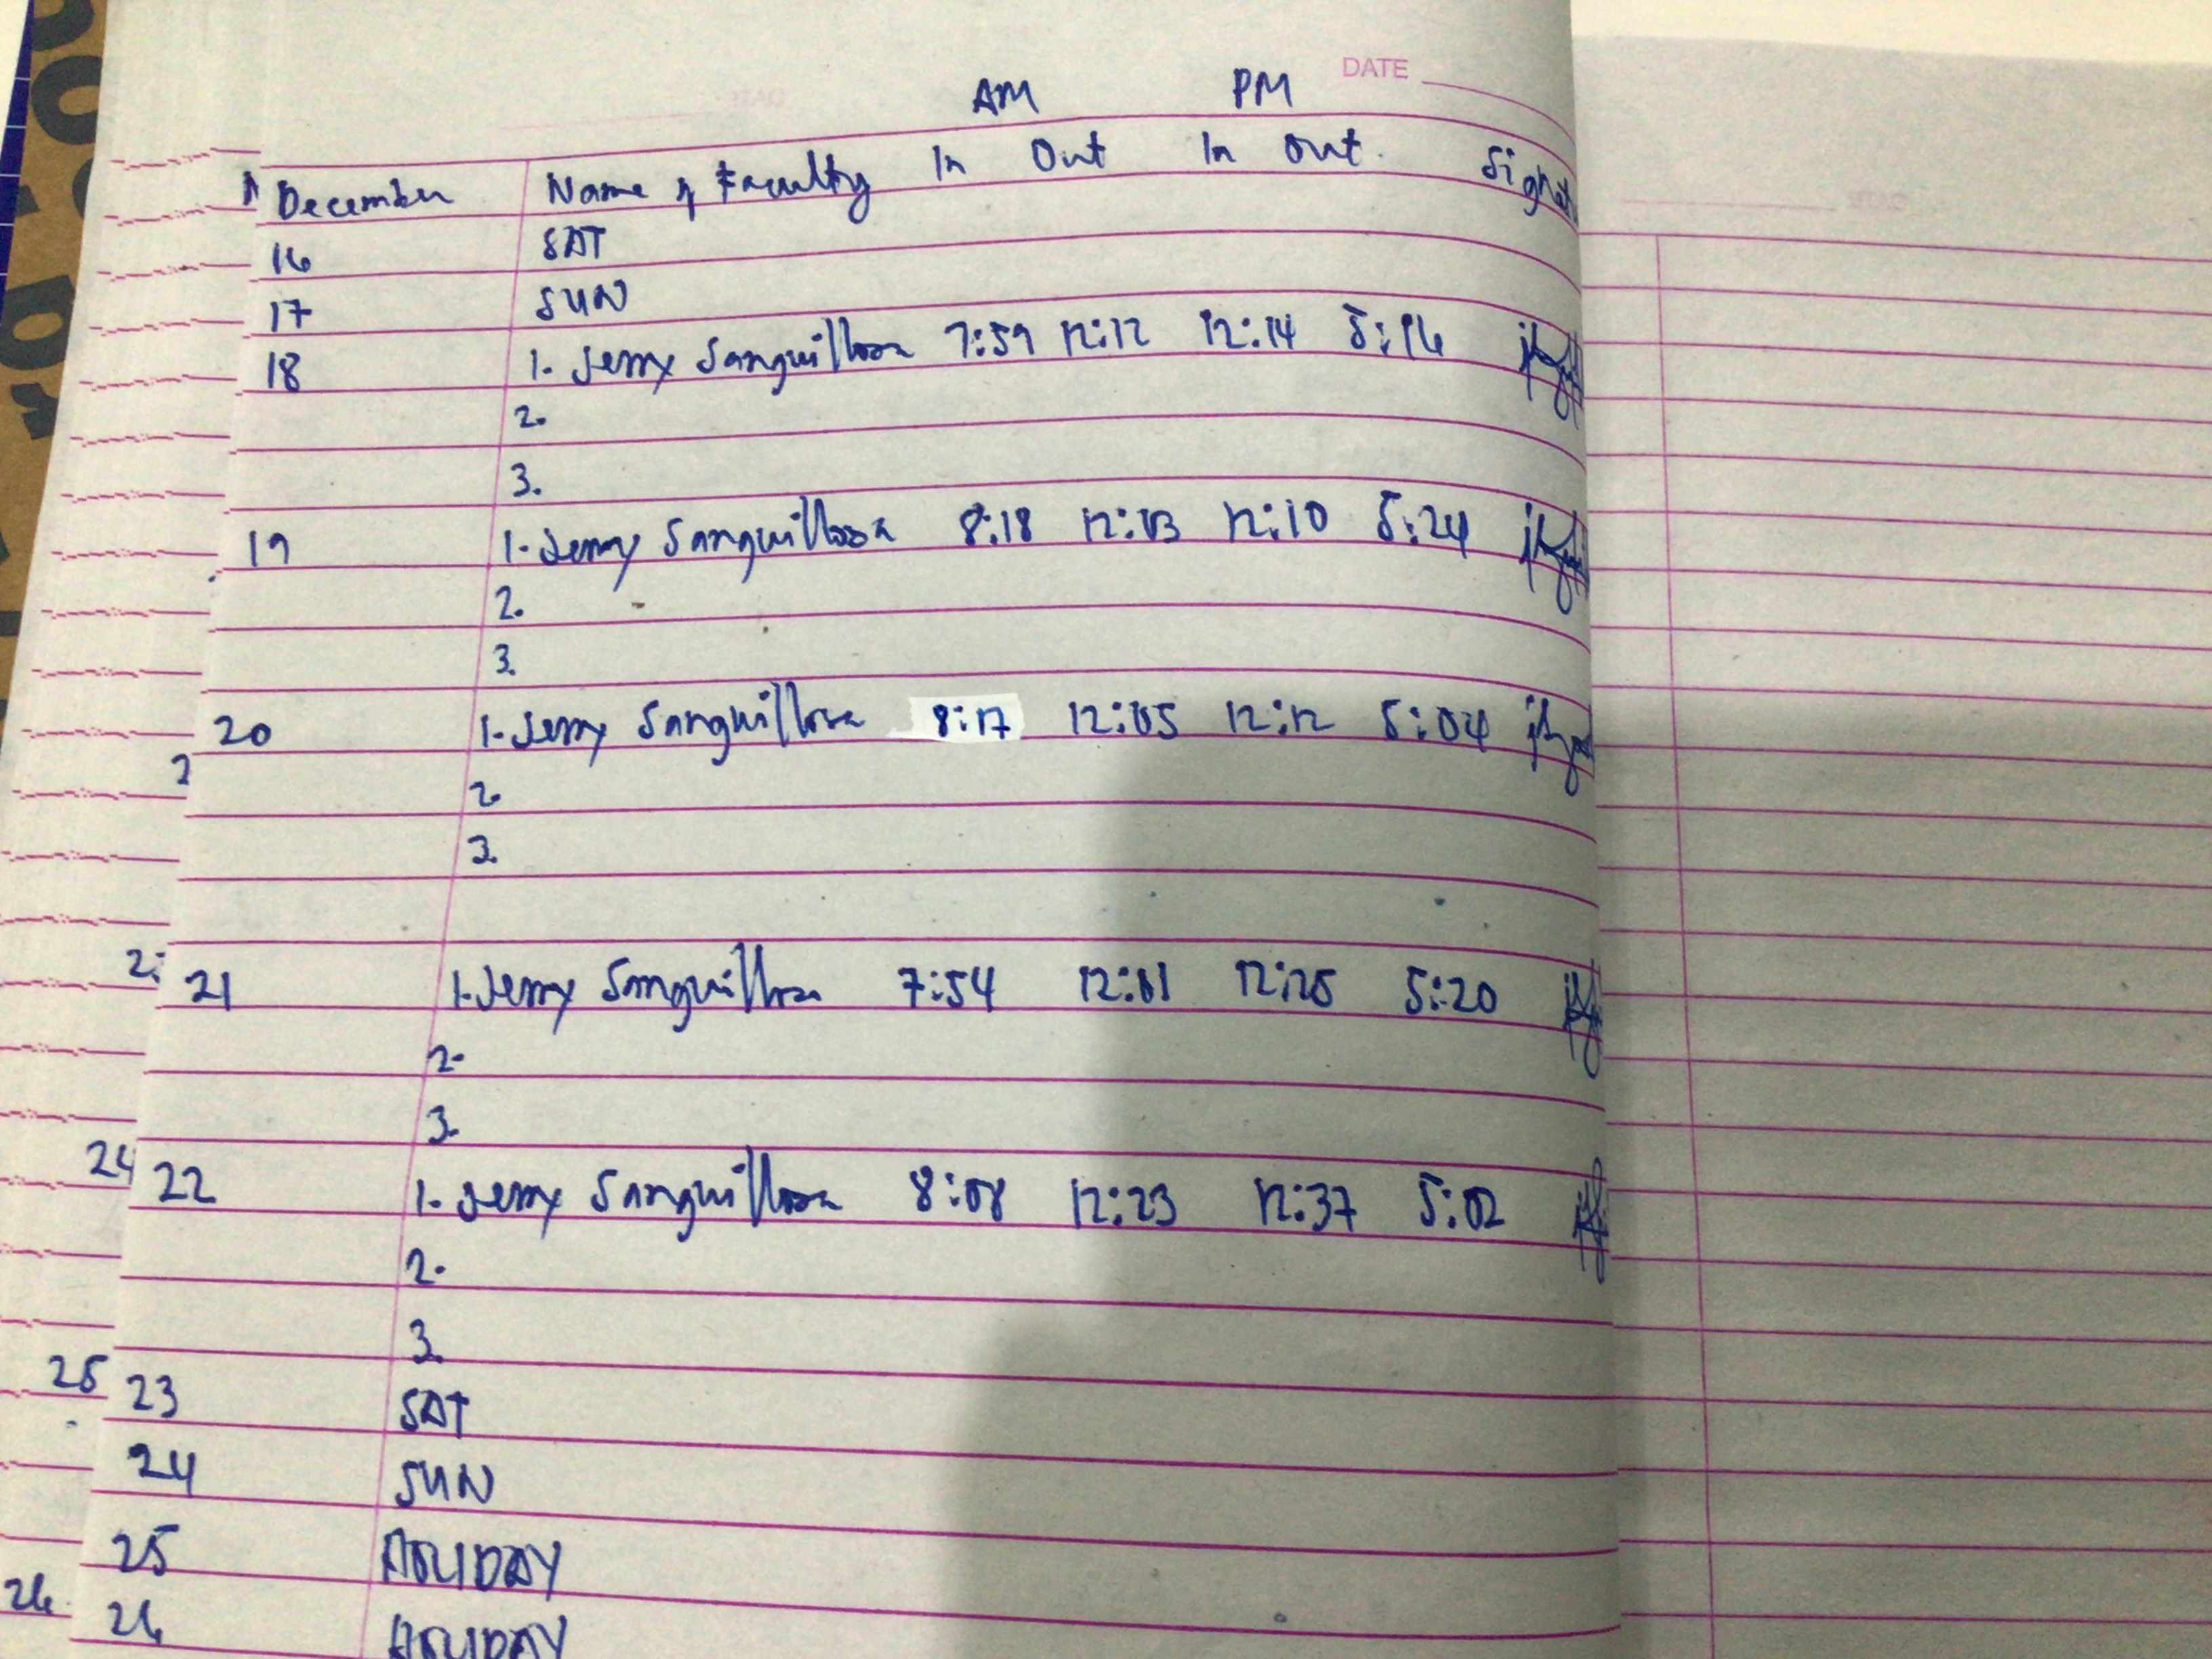 DATE
AM PM
December Name of Faculty In Out In Out
16 SAT
17 SUN
18 1. Jerry Sanguillosa 7:59 12:12 12:14 5:16
2.
3.
19 1. Jerry Sanguillosa 8:18 12:03 12:10 5:24
2.
3.
20 1. Jerry Sanguillosa 8:17 12:05 12:12 5:04
2
3.
21 1. Jerry Sanguillosa 7:54 12:01 12:25 5:20
2.
3.
22 1. Jerry Sanguillosa 8:08 12:23 12:37 5:02
2.
3.
23 SAT
24 SUN
25 HOLIDAY
26 HOLIDAY
24
25
26